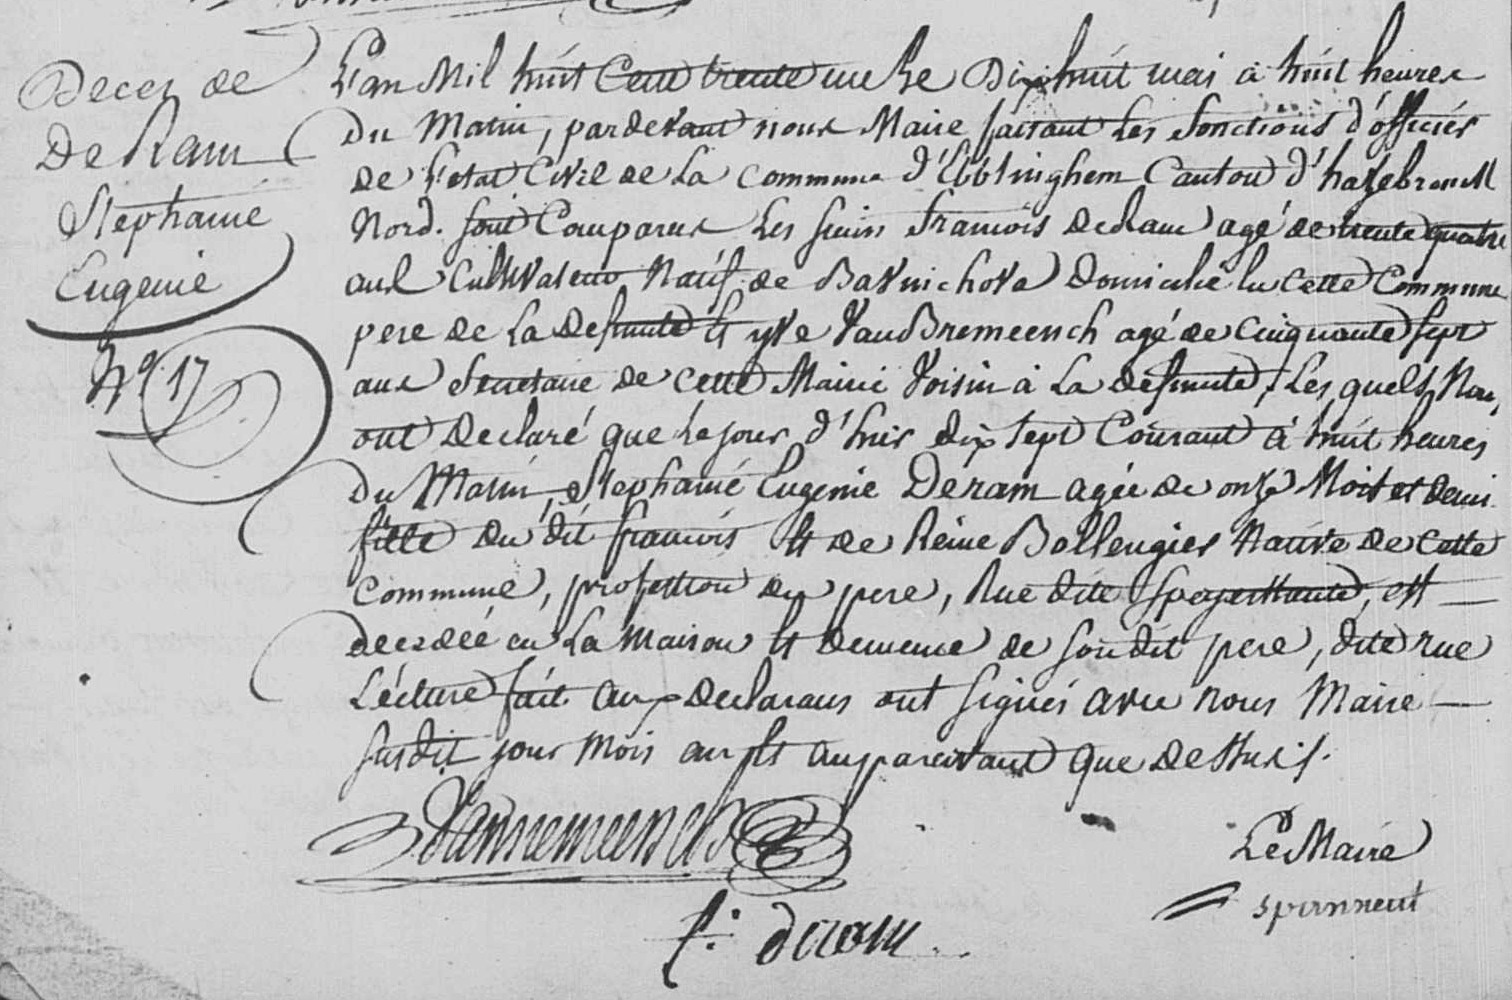 Deces de
De Ram
Stephanie
Eugenie
N° 17
L'an Mil huit Cent trente un Le Dix huit mai à huit heures
Du Matin, pardevant nous Maire faisant Les fonctions d'officier
de L'etat Civil de La Commune d'Ebblinghem Canton d'hazebrouck
Nord. sont Comparus Les sieurs francois deRam agé de trente quatre
ans Cultivateur Natif de Bavinchove domicilié en Cette Commune
pere de La defunte et yve VandBremeersch agé de Cinquante sept
ans Secretaire de cette Mairie Voisin à La defunte, Les quels Nous
ont declaré que Le jour d'hier dix sept Courant à huit heures
Du Matin, Stephanie Eugenie Deram agée de onze Mois et demi
fille du dit francois et de Reine Bollengier Native de Cette
Commune, profession du pere, Rue dite est
decedée en La maison et demeure de son dit pere, dite rue
Lécture fait aux declarans ont signés avec nous Maire
susdit jour Mois an et auparavant que dessus.
Le Maire
f. deram